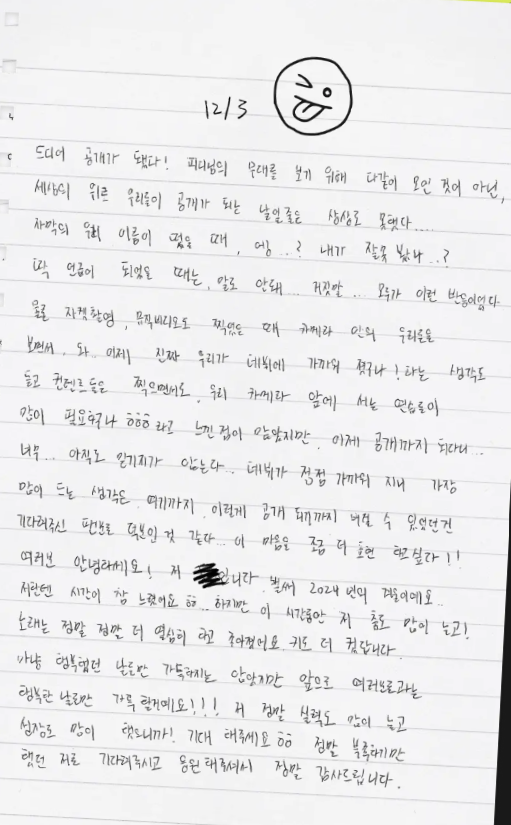 12/3
드디어 공개가 됐다! 피디님의 무대를 보기 위해 다같이 모인 것이 아닌,
세상의 위른 우리들이 공개가 되는 날일줄은 상상도 못했다....
자막의 우리 이름이 떴을 때, 어..? 내가 잘못 봤나..?
딱 언급이 되었을 때는, 말도 안돼... 거짓말... 모두가 이런 반응이었다
물론 자켓촬영, 뮤직비디오도 찍었을 때 카메라 안의 우리들을
보면서, 와.. 이제 진짜 우리가 데뷔에 가까워 졌구나! 라는 생각도
들고 컨텐츠들을 찍으면서도, 우리 카메라 앞에 서는 연습들이
많이 필요하구나 ㅎㅎㅎ라고 느낀점이 많았지만, 이제 공개까지 되다니...
너무... 아직도 믿기지가 않는다... 데뷔가 점점 가까워 지니 가장
많이 드는 생각은, 여기까지, 이렇게 공개 되기까지 버틸 수 있었던건
기다려주신 팬분들 덕분인 것 같다... 이 마음을 조금 더 표현 하고싶다!!
여러분 안녕하세요! 저 입니다. 벌써 2024년의 겨울이에요..
저한텐 시간이 참 느렸어요 ㅎㅎ.. 하지만 이 시간동안 저 춤도 많이 늘고!
노래는 정말 정말 더 열심히 하고 좋아졌어요 키도 더 컸답니다.
마냥 행복했던 날들만 가득하지는 않았지만 앞으로 여러분과는
행복한 날들만 가득 할거예요!!! 저 정말 실력도 많이 늘고
성장도 많이 했으니까! 기대 해주세요 ㅎㅎ 정말 부족하기만
했던 저를 기다려주시고 응원해주셔서 정말 감사드립니다.